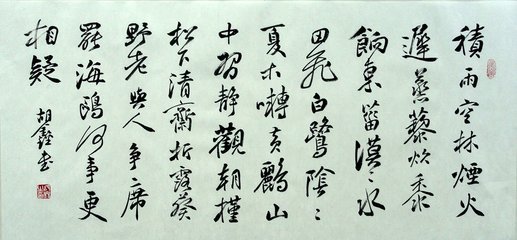 積雨空林煙火
遲蒸藜炊黍
餉東菑漠々水
田飛白鷺陰々
夏木囀黃鸝山
中習靜觀朝槿
松下清齋折露葵
野老與人爭席
罷海鷗何事更
相疑
胡鑫书